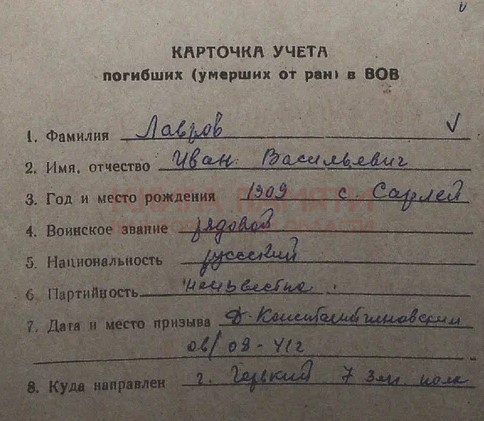 КАРТОЧКА УЧЕТА
погибших (умерших от ран) в ВОВ
1. Фамилия Лавров
2. Имя, отчество Иван Васильевич
3. Год и место рождения 1909 с. Сарлей
4. Воинское звание рядовой
5. Национальность русский
6. Партийность неизвестно.
7. Дата и место призыва Д-Константиновским
08/09-41г
8. Куда направлен г. Горький 7 зап. полк